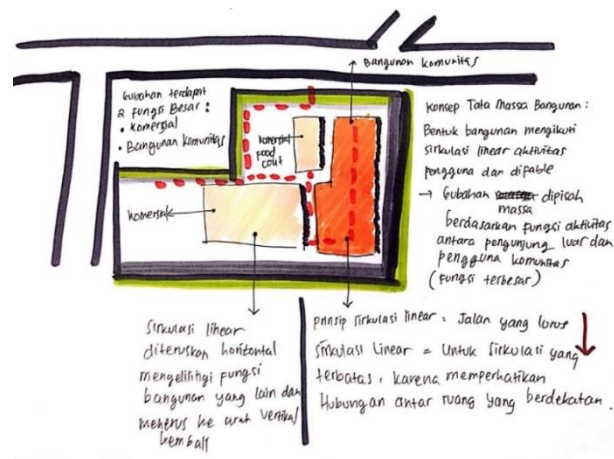 Bangunan komunitas
Gubahan terdapat
2 fungsi Besar :
• Komersial
• Bangunan Komunitas
komersial
food
cout
komersial
Konsep Tata Massa Bangunan :
Bentuk bangunan mengikuti
sirkulasi linear aktivitas
pengguna dan difable
→ Gubahan massa dipisah
berdasarkan fungsi aktivitas
antara pengunjung luar dan
pengguna komunitas
(fungsi terbesar)
Sirkulasi linear
diteruskan horizontal
mengelilingi fungsi
bangunan yang lain dan
menerus ke arah vertikal
kembali
prinsip sirkulasi linear = Jalan yang lurus
Sirkulasi Linear = Untuk sirkulasi yang
terbatas, karena memperhatikan
Hubungan antar ruang yang berdekatan.